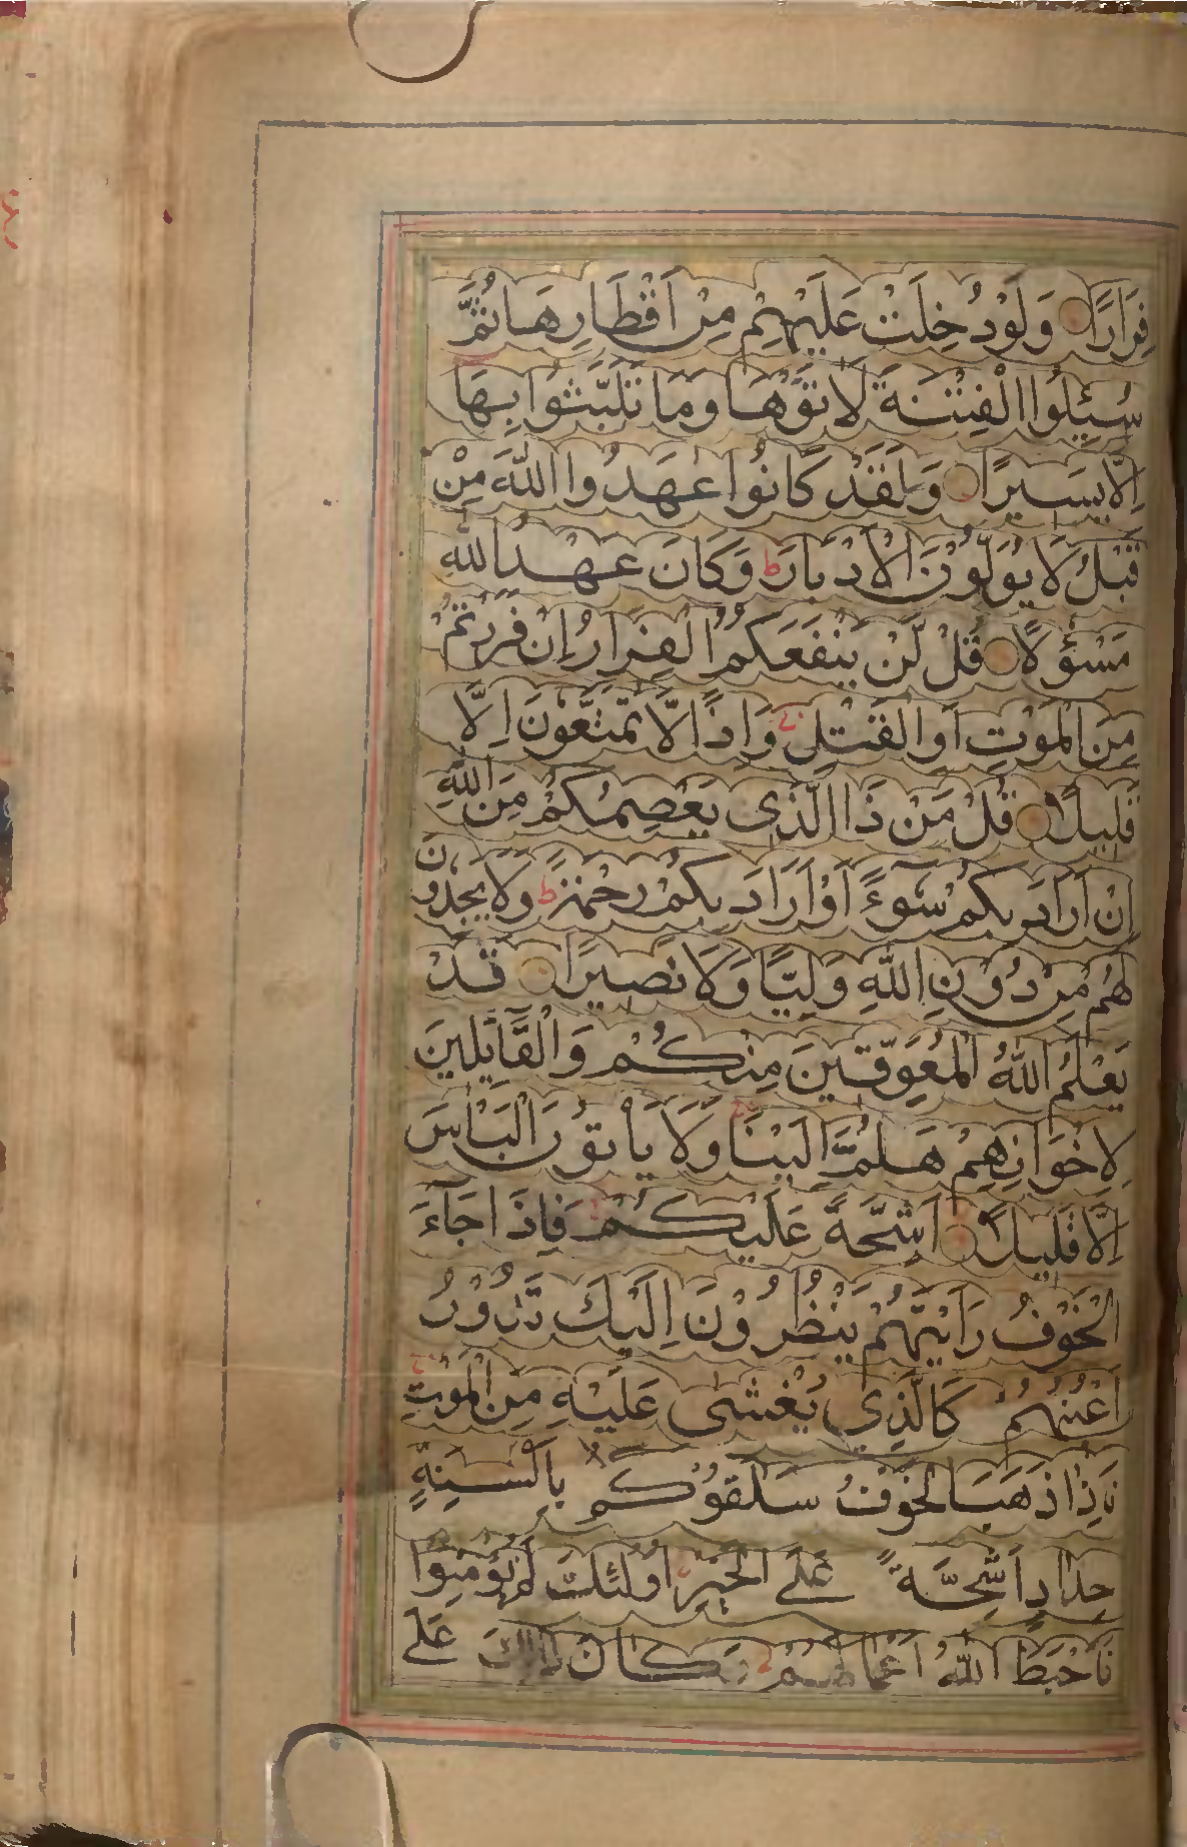 فِرَارًا وَلَوْ دُخِلَتْ عَلَيْهِمْ مِنْ اَقْطَارِهَا ثُمَّ
سُئِلُوا الْفِتْنَةَ لَاٰتَوْهَا وَمَا تَلَبَّثُوْا بِهَا
اِلَّا يَسِيْرًا وَلَقَدْ كَانُوْا عَهَدُوا اللّٰهَ مِنْ
قَبْلُ لَا يُوَلُّوْنَ الْاَدْبَارَ ط وَكَانَ عَهْدُ اللّٰهِ
مَسْؤُلًا قُلْ لَّنْ يَنْفَعَكُمُ الْفِرَارُ اِنْ فَرَرْتُمْ
مِنَ الْمَوْتِ اَوِ الْقَتْلِ وَاِذًا لَّا تُمَتَّعُوْنَ اِلَّا
قَلِيْلًا قُلْ مَنْ ذَا الَّذِى يَعْصِمُكُمْ مِنَ اللّٰهِ
اِنْ اَرَادَ بِكُمْ سُوْٓءًا اَوْ اَرَادَ بِكُمْ رَحْمَةً ط وَلَا يَجِدُوْنَ
لَهُمْ مِنْ دُوْنِ اللّٰهِ وَلِيًّا وَلَا نَصِيْرًا قَدْ
يَعْلَمُ اللّٰهُ الْمُعَوِّقِيْنَ مِنْكُمْ وَالْقَآئِلِيْنَ
لِاِخْوَانِهِمْ هَلُمَّ اِلَيْنَا وَلَا يَاْتُوْنَ الْبَاْسَ
اِلَّا قَلِيْلًا اَشِحَّةً عَلَيْكُمْ فَاِذَا جَآءَ
الْخَوْفُ رَاَيْتَهُمْ يَنْظُرُوْنَ اِلَيْكَ تَدُوْرُ
اَعْيُنُهُمْ كَالَّذِيْ يُغْشٰى عَلَيْهِ مِنَ الْمَوْتِ
فَاِذَا ذَهَبَ الْخَوْفُ سَلَقُوْكُمْ بِاَلْسِنَةٍ
حِدَادٍ اَشِحَّةً عَلَى الْخَيْرِ اُولٰئِكَ لَمْ يُؤْمِنُوْا
فَاَحْبَطَ اللّٰهُ اَعْمَالَهُمْ وَكَانَ ذٰلِكَ عَلَى